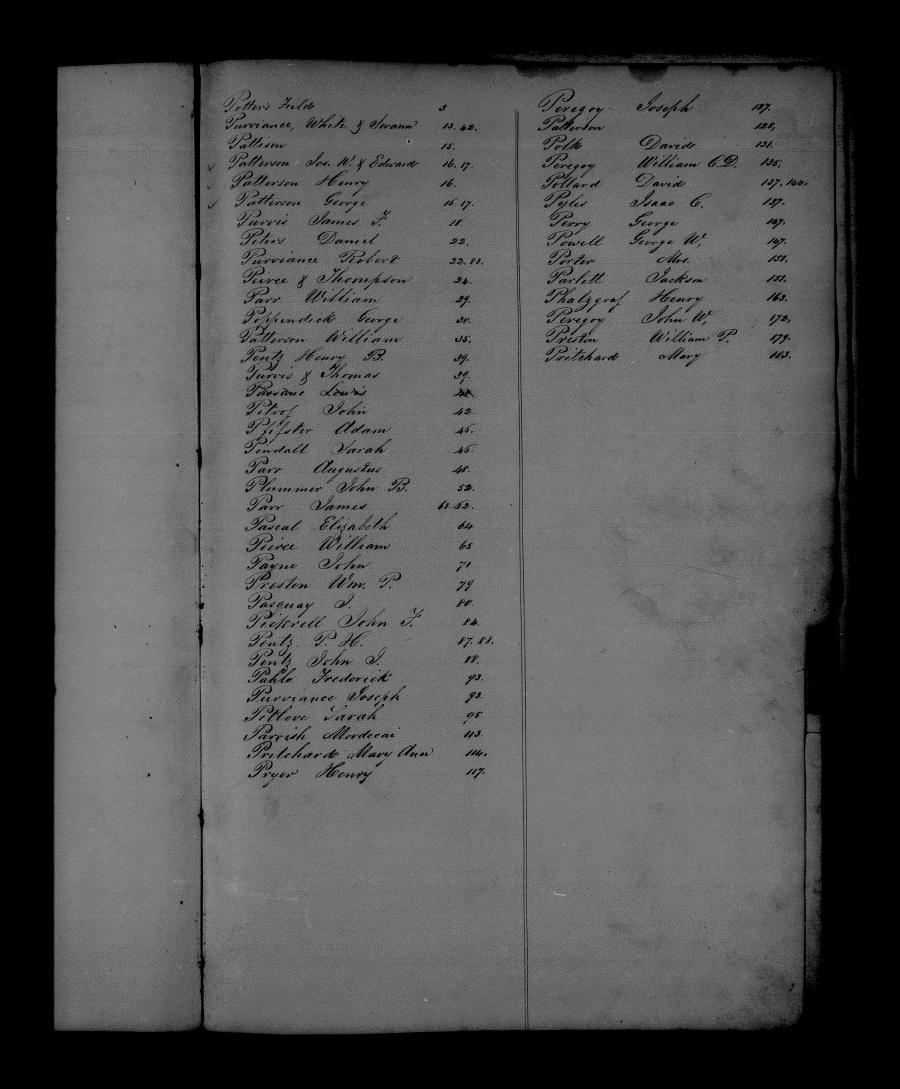 Potters Fields 3
Purviance, White & Swann 13. 42.
Pattison 15.
Patterson Jos. W. & Edward 16. 17.
Patterson Henry 16.
Patterson George 15. 17.
Purvis James F. 18.
Peters Daniel 22.
Purviance Robert 22. 81.
Peirce & Thompson 24.
Parr William 29.
Poppendick George 30.
Patterson William 35.
Pentz Henry B. 39.
Purvis & Thomas 39.
Parsane Lewis
Petrof John 42.
Pfifster Adam 45.
Pindall Sarah 45.
Parr Augustus 48.
Plummer John B. 52.
Parr James 61. 62.
Pascal Elizabeth 64.
Peirce William 65
Payne John 71
Preston Wm. P. 79
Pasquay J. 80.
Pickrell John F. 84.
Pentz P. H. 87. 88.
Pentz John J. 88.
Pahle Frederick 93.
Purviance Joseph 93.
Petlove Sarah 95
Parrish Mordecai 113.
Pritchard Mary Ann 114.
Pryer Henry 117.
Peregoy Joseph 127.
Patterson 128,
Polk David 131.
Peregoy William C.D. 135,
Pollard David 137. 144.
Pyles Isaac C. 137.
Perry George 147.
Powell George W, 147.
Porter Mrs. 151.
Parlitt Jackson 151.
Phalzgraf Henry 163.
Peregoy John W, 172,
Preston William P. 179.
Pritchard Mary 183.